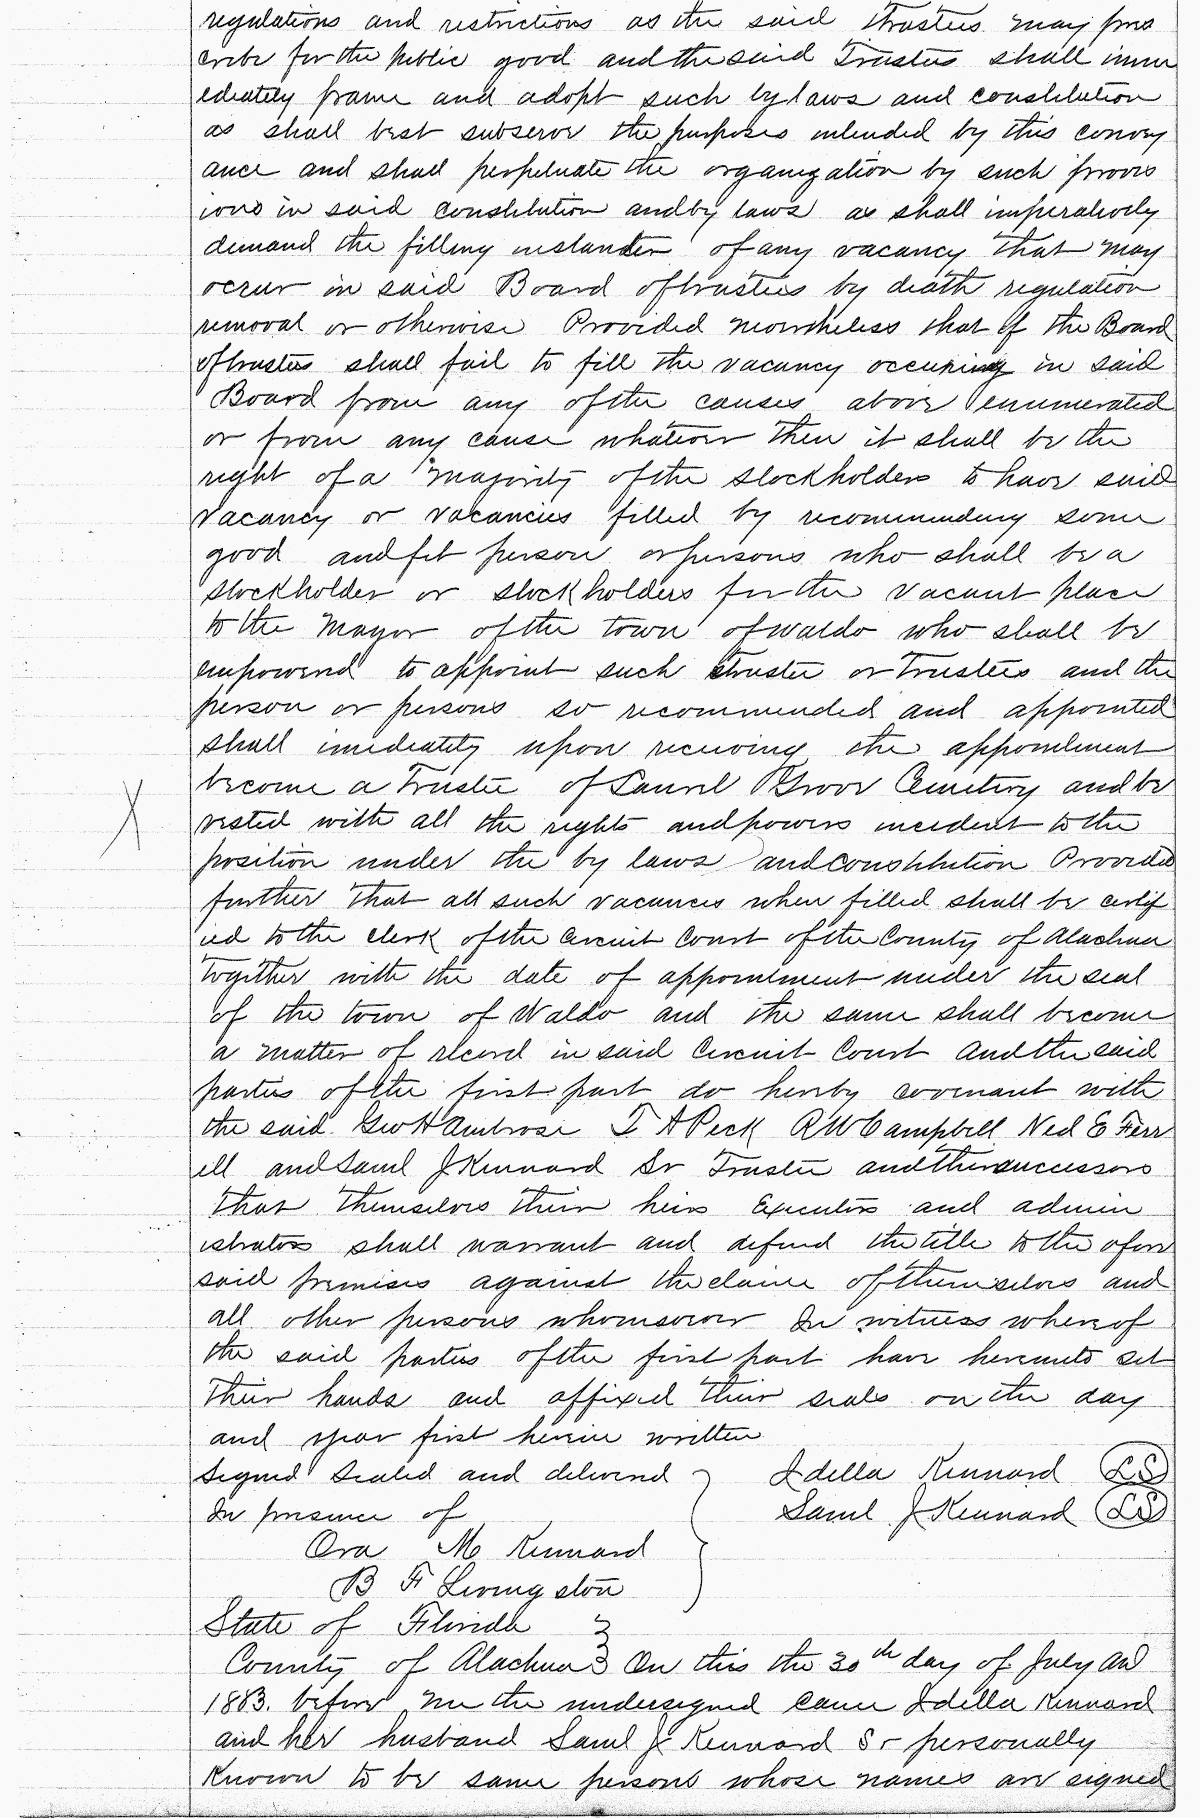 regulations and restrictions as the said Trustees may pres
cribe for the public good and the said Trustees shall imm
ediately frame and adopt such by laws and constitution
as shall best subserve the purposes intended by this convey
ance and shall perpetuate the organization by such provis
ions in said constitution and by laws as shall imperatively
demand the filling instanter of any vacancy that may
occur in said Board of trustees by death regulation
removal or otherwise Provided nevertheless that if the Board
of trustees shall fail to fill the vacancy occuring in said
Board from any of the causes above enumerated
or from any cause whatever then it shall be the
right of a majority of the stockholders to have said
vacancy or vacancies filled by recommending some
good and fit person or persons who shall be a
stockholder or stockholders for the vacant place
to the Mayor of the town of Waldo who shall be
empowered to appoint such trustee or Trustees and the
person or persons so recommended and appointed
shall imediately upon receiving the appointment
become a Trustee of Laurel Grove Cemetery and be
vested with all the rights and powers incident to the
position under the by laws and constitution Provided
further that all such vacancies when filled shall be certif
ied to the clerk of the Circuit Court of the County of Alachua
together with the date of appointment under the seal
of the town of Waldo and the same shall become
a matter of record in said Circuit Court And the said
parties of the first part do hereby covenant with
the said Geo H Ambrose T A Peck R W Campbell Ned E Ferr
ell and Saml J Kennard Sr Trustee and their successors
that themselves their heirs Executors and admin
istrators shall warrant and defend the title to the afore
said premises against the claim of themselves and
all other persons whomsoever In witness whereof
the said parties of the first part have hereunto set
their hands and affixed their seals on the day
and year first herein written
Signed Sealed and delivered Idella Kennard LS
In presence of Saml J Kennard LS
Ora M Kennard
B F Livingston
State of Florida
County of Alachua On this the 30th day of July AD
1883. before me the undersigned came Idella Kennard
and her husband Saml J Kennard Sr personally
Known to be same persons whose names are signed